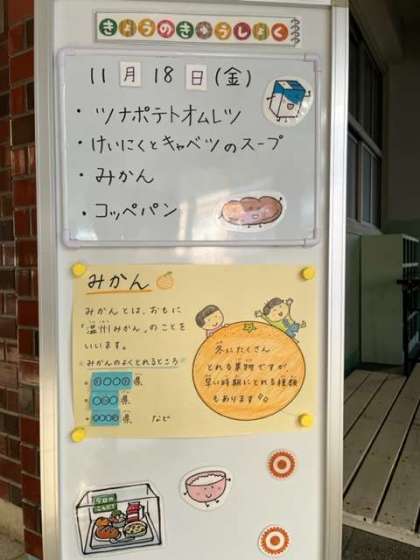 きょうのきゅうしょく
11月18日(金)
・ツナポテトオムレツ
・けいにくとキャベツのスープ
・みかん
・コッペパン
みかん
みかんとは、おもに
「温州みかん」のことを
いいます。
みかんのよくとれるところ
県
県
県 など
冬にたくさん
とれる果物ですが、
早い時期にとれる種類
もあります